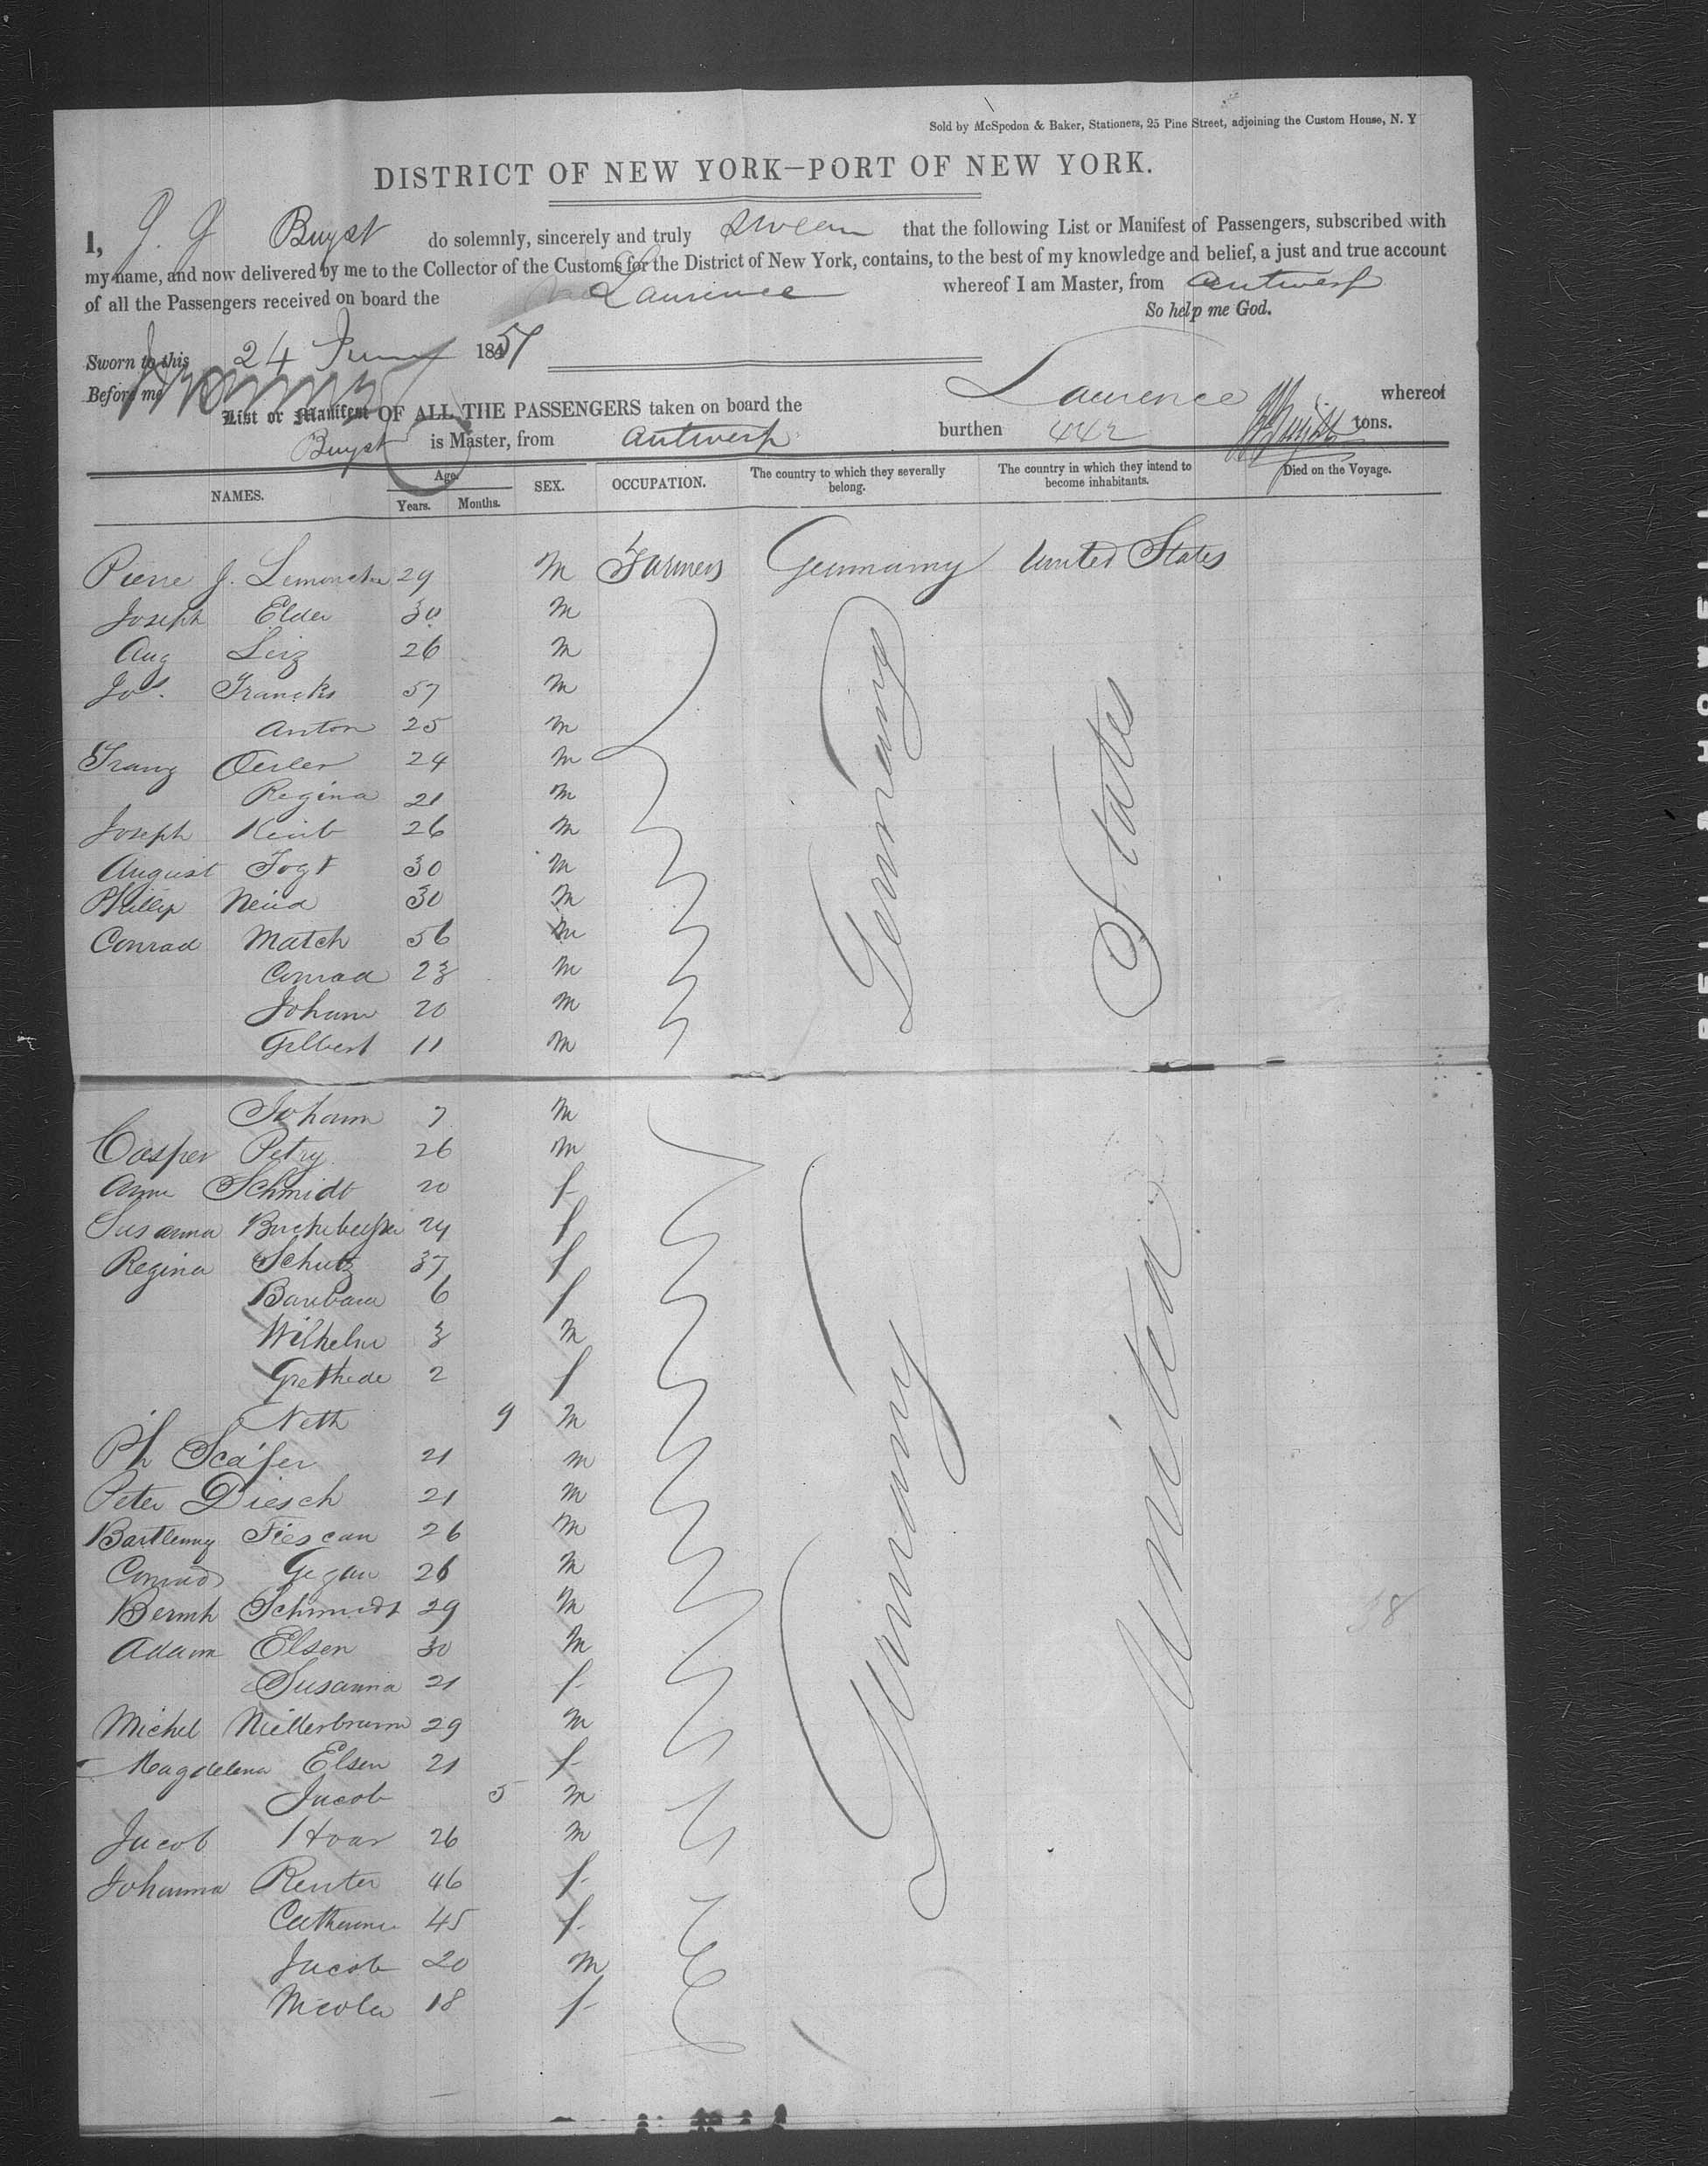 Sold by McSpedon & Baker, Stationers, 25 Pine Street, adjoining the Custom House, N. Y
DISTRICT OF NEW YORK—PORT OF NEW YORK.
I, J. J Buyst do solemnly, sincerely and truly swear that the following List or Manifest of Passengers, subscribed with
my name, and now delivered by me to the Collector of the Customs for the District of New York, contains, to the best of my knowledge and belief, a just and true account
of all the Passengers received on board the Laurence whereof I am Master, from Antwerp
So help me God.
Sworn to this 24 June 1851
Before me
List or Manifest OF ALL THE PASSENGERS taken on board the Laurence whereof
Buyst is Master, from Antwerp burthen 442 tons.
NAMES. Age. Years. Months. SEX. OCCUPATION. The country to which they severally belong. The country in which they intend to become inhabitants. Died on the Voyage.
Pierre J. 29 M Farmers Germany United States
Joseph Elder 30 M
Aug 26 M
Jos. Francks 57 M
Anton 25 M
Franz Oesler 24 M
Regina 21 M
Joseph 26 M
August Fogt 30 M
Phillip 30 M
Conrad Match 56 M
Conrad 23 M
Johann 20 M
Gilbert 11 M
Johann 7 M
Casper Petry 26 M
Anna Schmidt 20 f
Susanna 24 f
Regina Schutz 37 f
Barbara 6 f
Wilhelm 3 M
2 f
Neth 9 M
Ph Scäfer 21 M
Peter Diesch 21 M
26 M
Conrad Gegan 26 M
Bernh Schmidt 29 M
Adam Elsen 30 M
Susanna 21 f
Michel 29 M
Magdelena Elsen 21 f
Jacob 5 M
Jacob Hoar 26 M
Johanna Renter 46 f
Catherine 45 f
Jacob 20 M
Nicola 18 f
Germany
Germany
United States
38